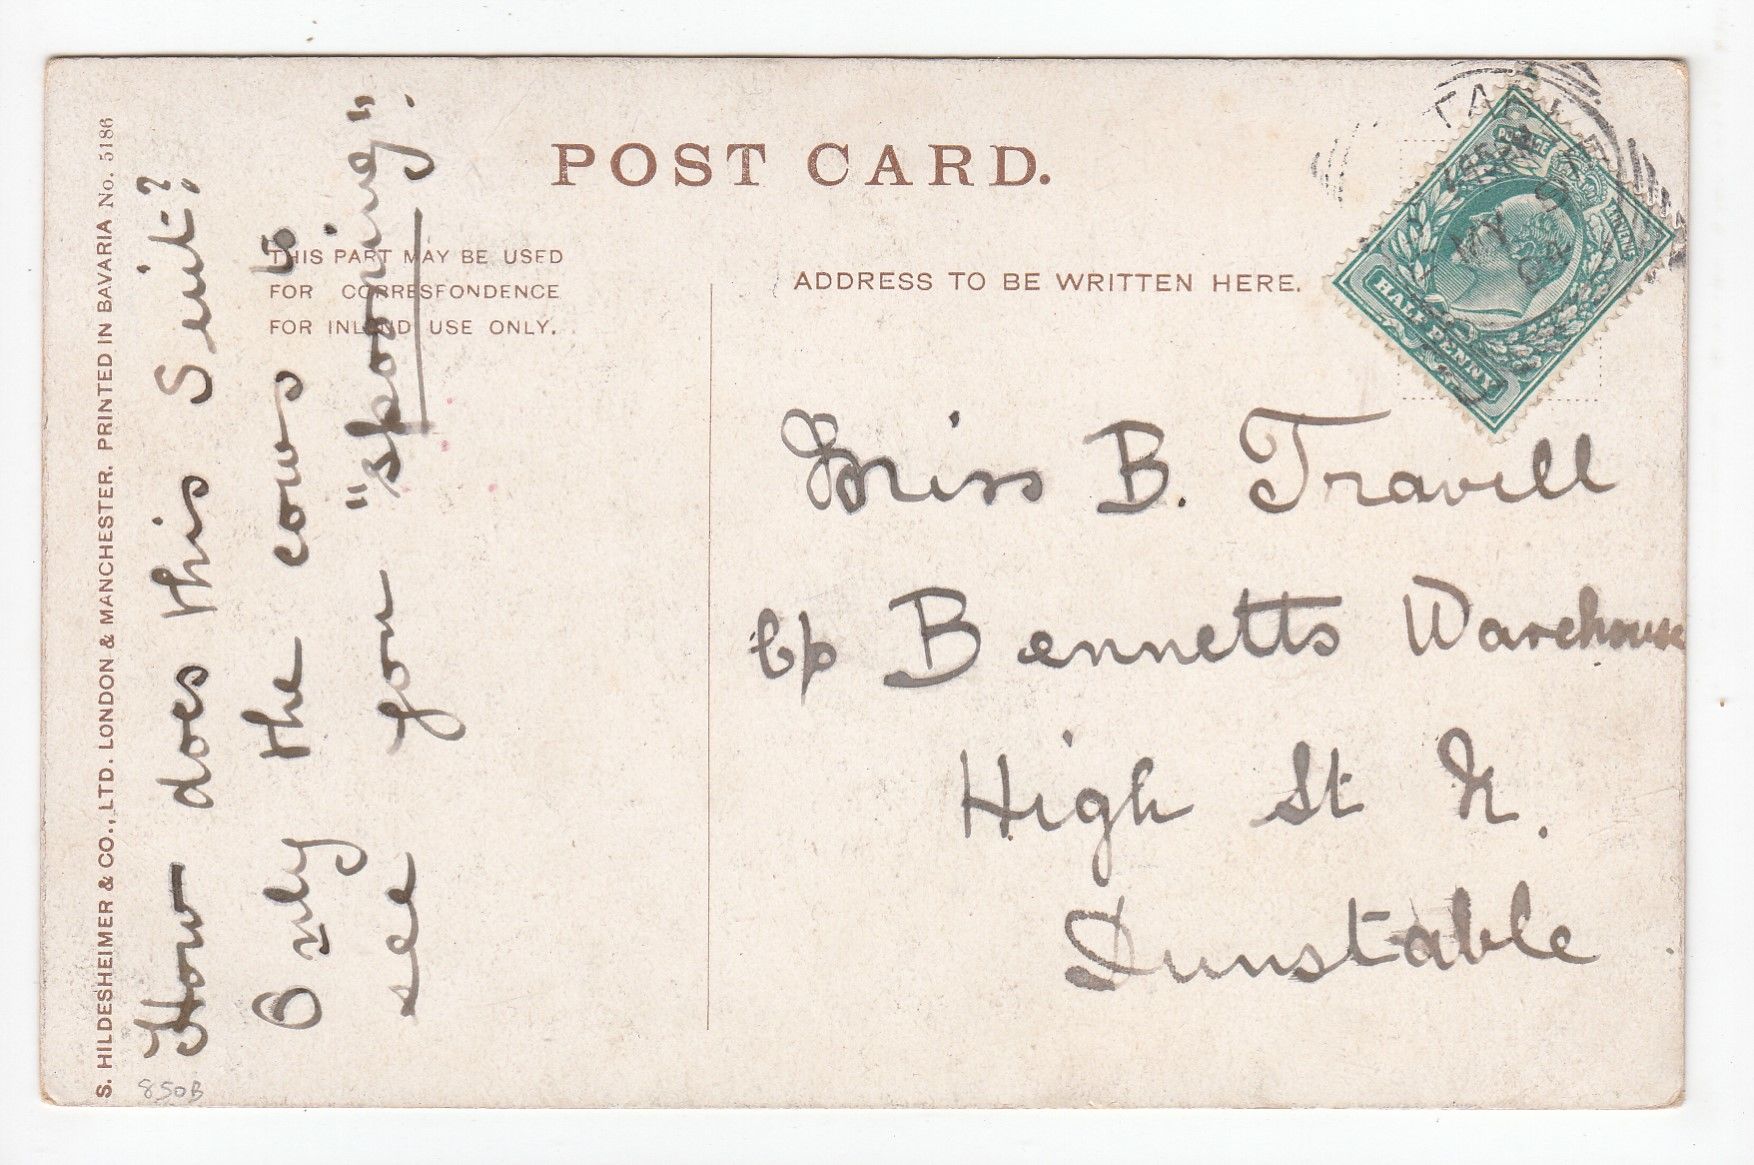 POST CARD.
THIS PART MAY BE USED
FOR CORRESPONDENCE
FOR INLAND USE ONLY.
ADDRESS TO BE WRITTEN HERE.
S. HILDESHEIMER & CO., LTD. LONDON & MANCHESTER. PRINTED IN BAVARIA No. 5186
How does this Suit?
Only the cows to
see you "spooning".
Miss B. Travill
c/o Bennetts Warehouse
High St N.
Dunstable
HALF PENNY
MY
850B